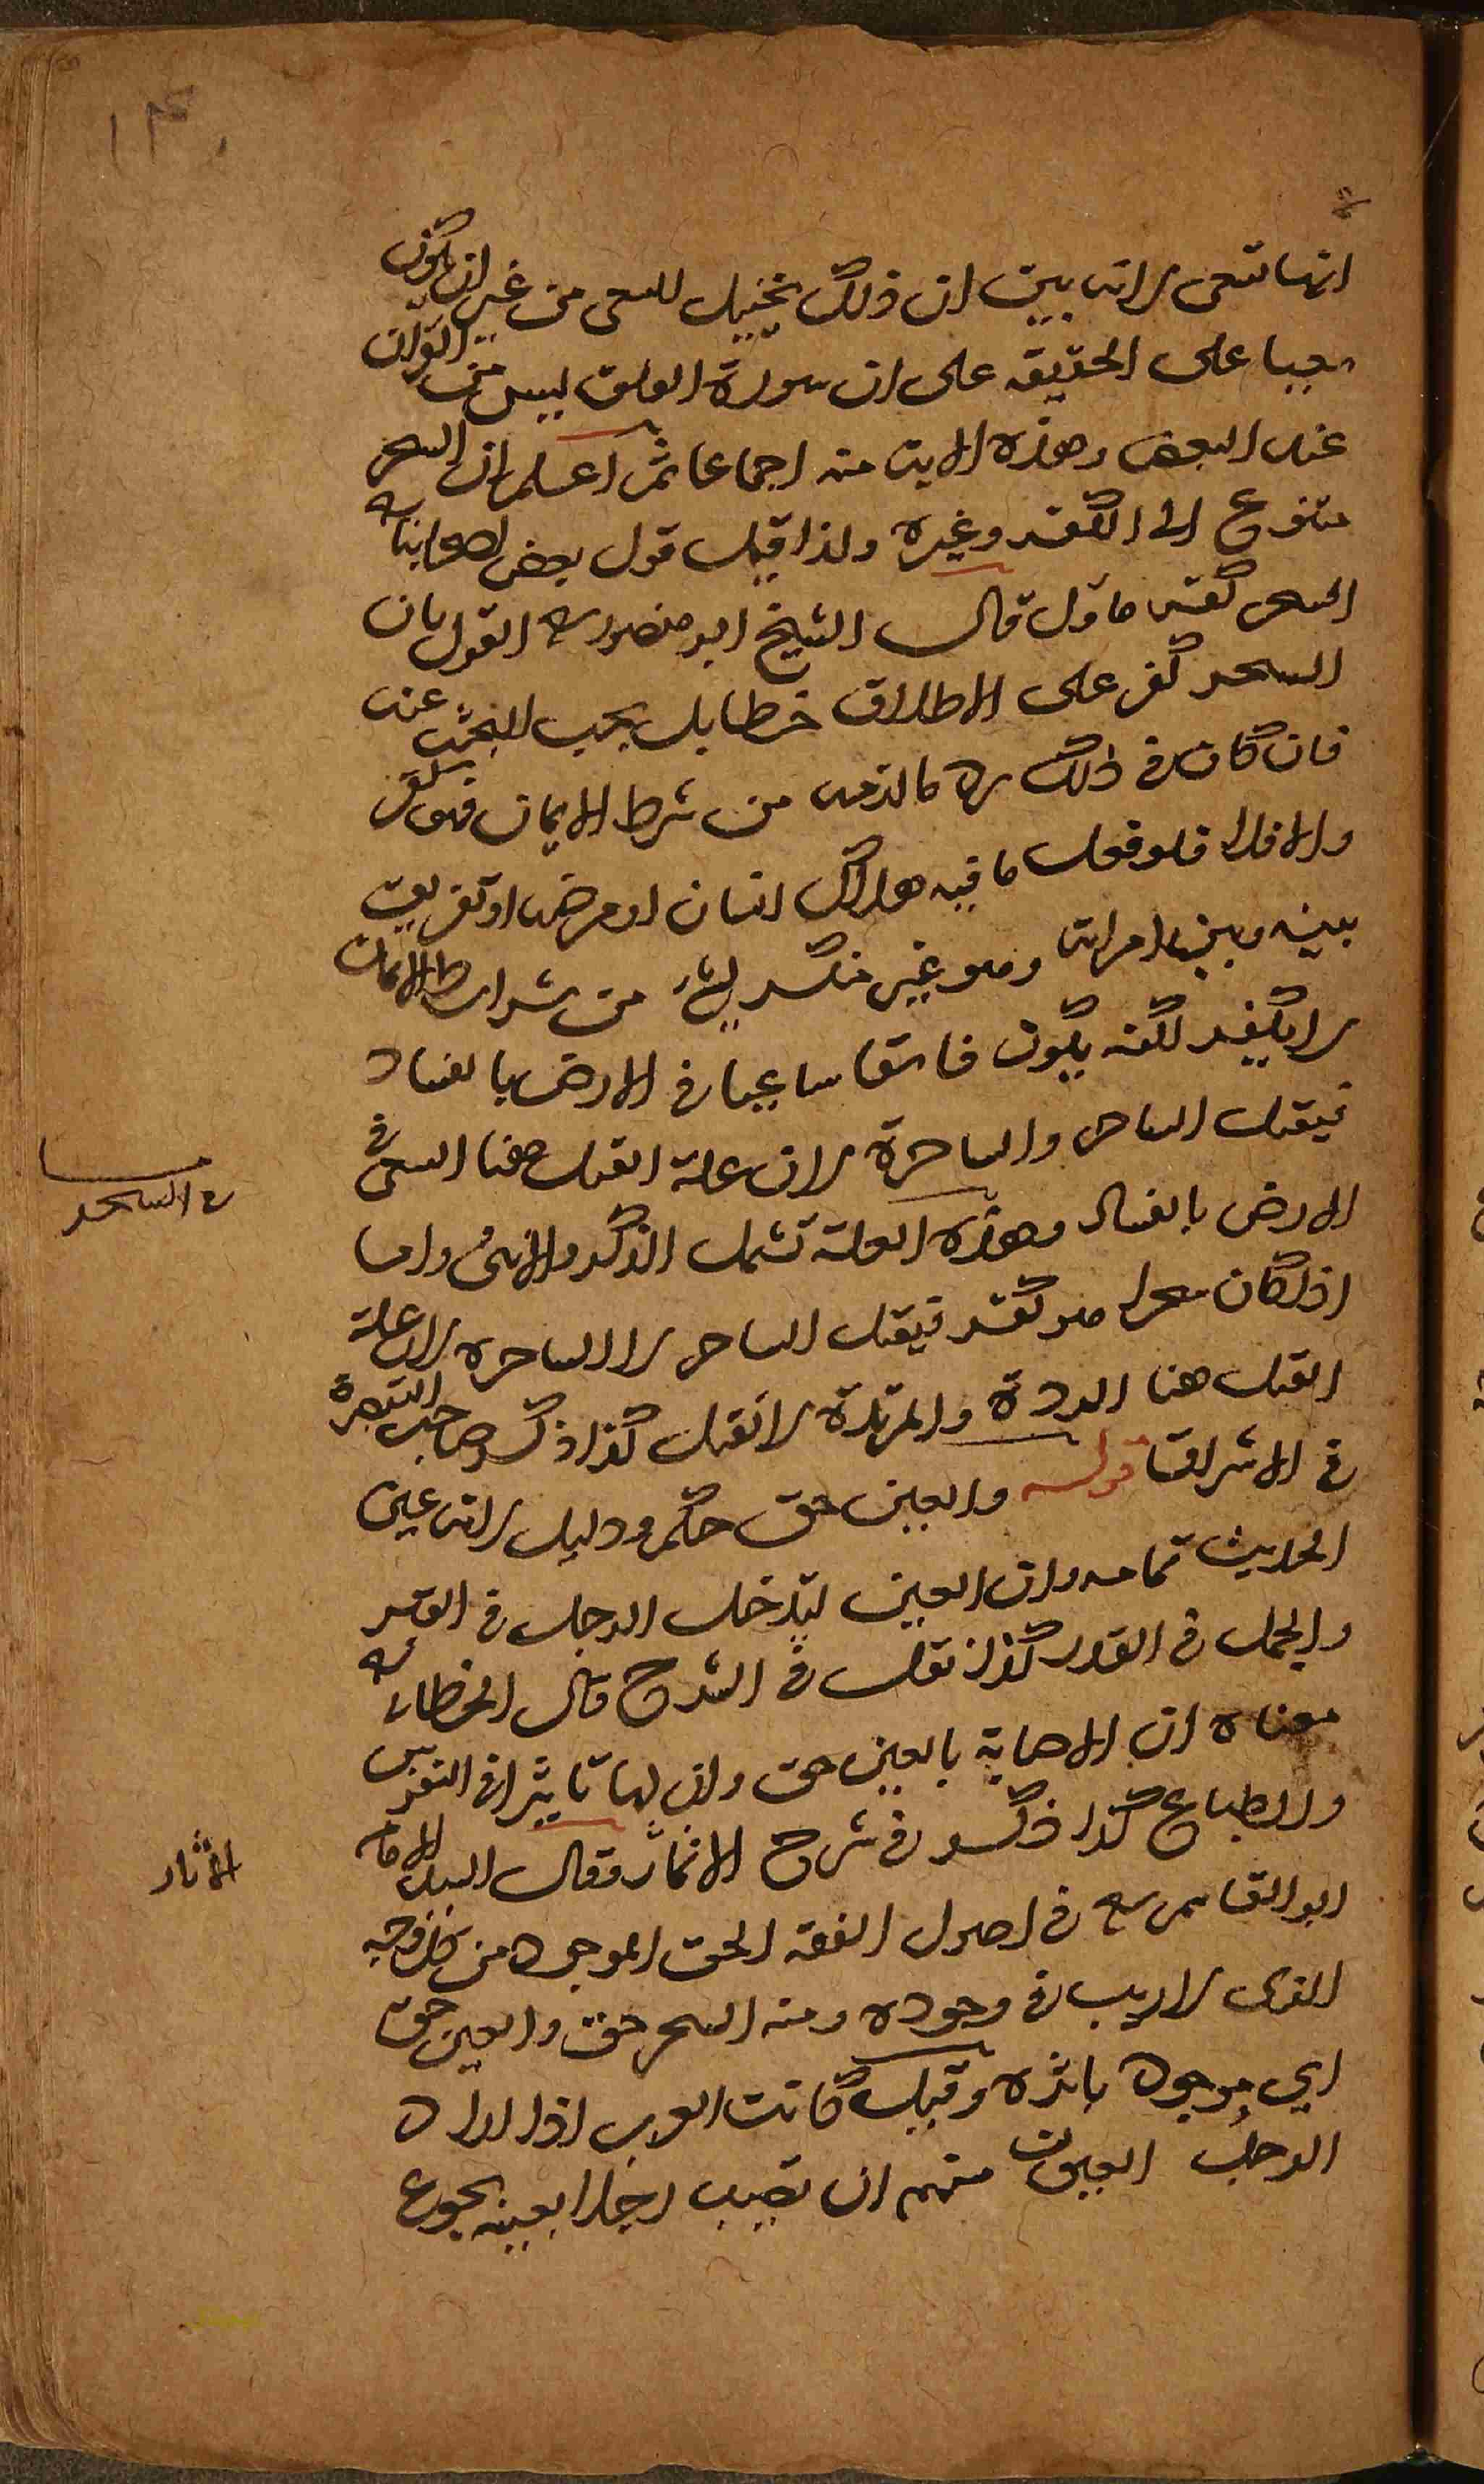 ١٣٠
انها تسعى لانه بين ان ذلك تخييل للسعى من غير ان يكون
سعيا على الحقيقه على ان سورة الفلق ليس من القرآن
عند البعض وهذه الاية منه اجماعا ثم اعلم ان السحر
متنوع الى الكفر وغيره ولذا قيل قول بعض اصحابنا
السحر كفر ماول قال الشيخ ابو منصور القول بان
السحر كفر على الاطلاق خطا بل يجب البحث عنه
فان كان فى ذلك رد ما لزمه من شرط الايمان فهو كفر
والا فلا فلو فعل ما فيه هلاك انسان او مرضه او تفريق
بينه وبين امراته وهو غير منكر لشئ من شرايط الايمان
لا يكفر لكنه يكون فاسقا ساعيا فى الارض بالفساد
فيقتل الساحر والساحرة لان علة القتل هنا السعى فى
الارض بالفساد وهذه العلة تشمل الذكر والانثى واما
اذا كان سحرا هو كفر فيقتل الساحر لا الساحره لان علة
القتل هنا الردة والمرتدة لا تقتل كذا ذكر صاحب التبصرة
فى الاشراق قوله والعين حق حكم ودليل لانه عين
الحديث تمامه وان العين ليدخل الرجل فى القبر
والجمل فى القدر كذا نقل فى الشرح قال الخطابى
معناه ان الاصابة بالعين حق وان لها تاثيرا فى النفوس
والطباع كذا ذكر فى شرح الاثار وقال السيد الامام
ابو القاسم فى اصول الفقه الحق الموجود من كل وجه
الذى لا ريب فى وجوده ومنه السحر حق والعين حق
اي موجود باثره وقيل كانت العرب اذا اراد
الرجل العيون منهم ان تصيب رجلا بعينه يجوع
فى السحر
الآثار